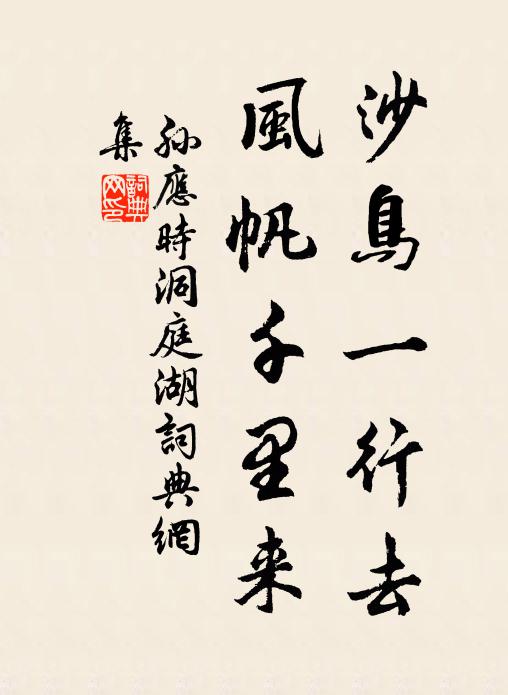 沙鳥一行去
風帆千里来
孫應時洞庭湖詞典網
集
詞典網印